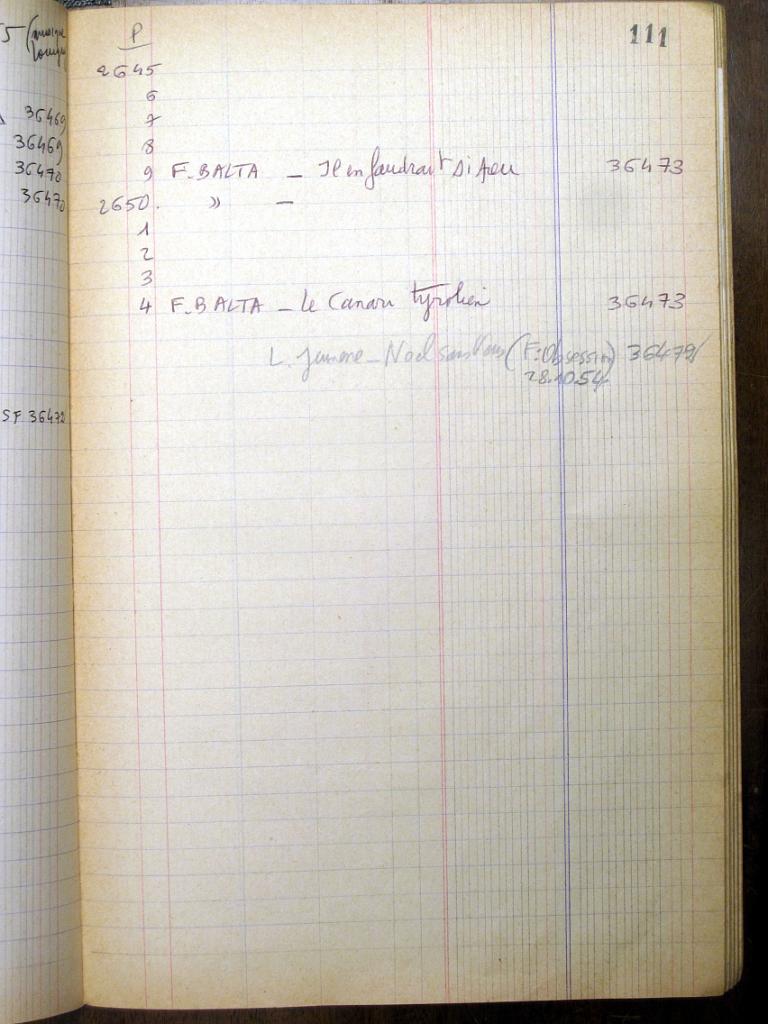 111
P
2645
6
7
8
9 F. BALTA _ Il en faudrait si peu 36473
2650. » —
1
2
3
4 F. BALTA _ Le Canari tyrolien 36473
L. _ Noel sans Vous (F: Obsession) 36479/
28.10.54
36469
36469
36470
36470
SF 36472